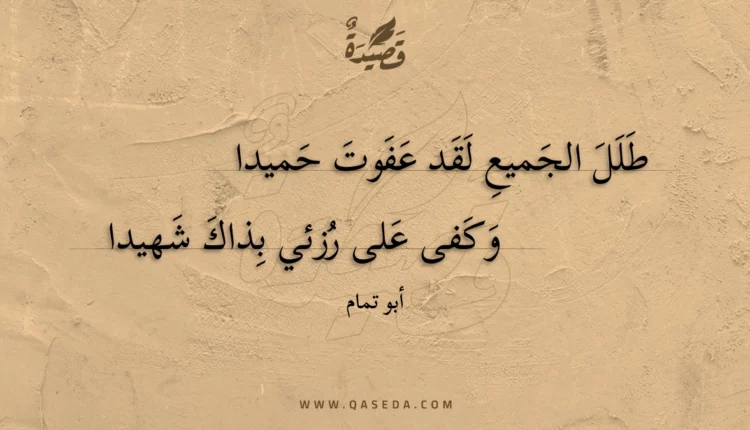 قَصِيدَةٌ
طَلَلَ الجَميعِ لَقَد عَفَوتَ حَميدا
وَكَفى عَلى رُزئي بِذاكَ شَهيدا
أبو تمام
WWW.QASEDA.COM